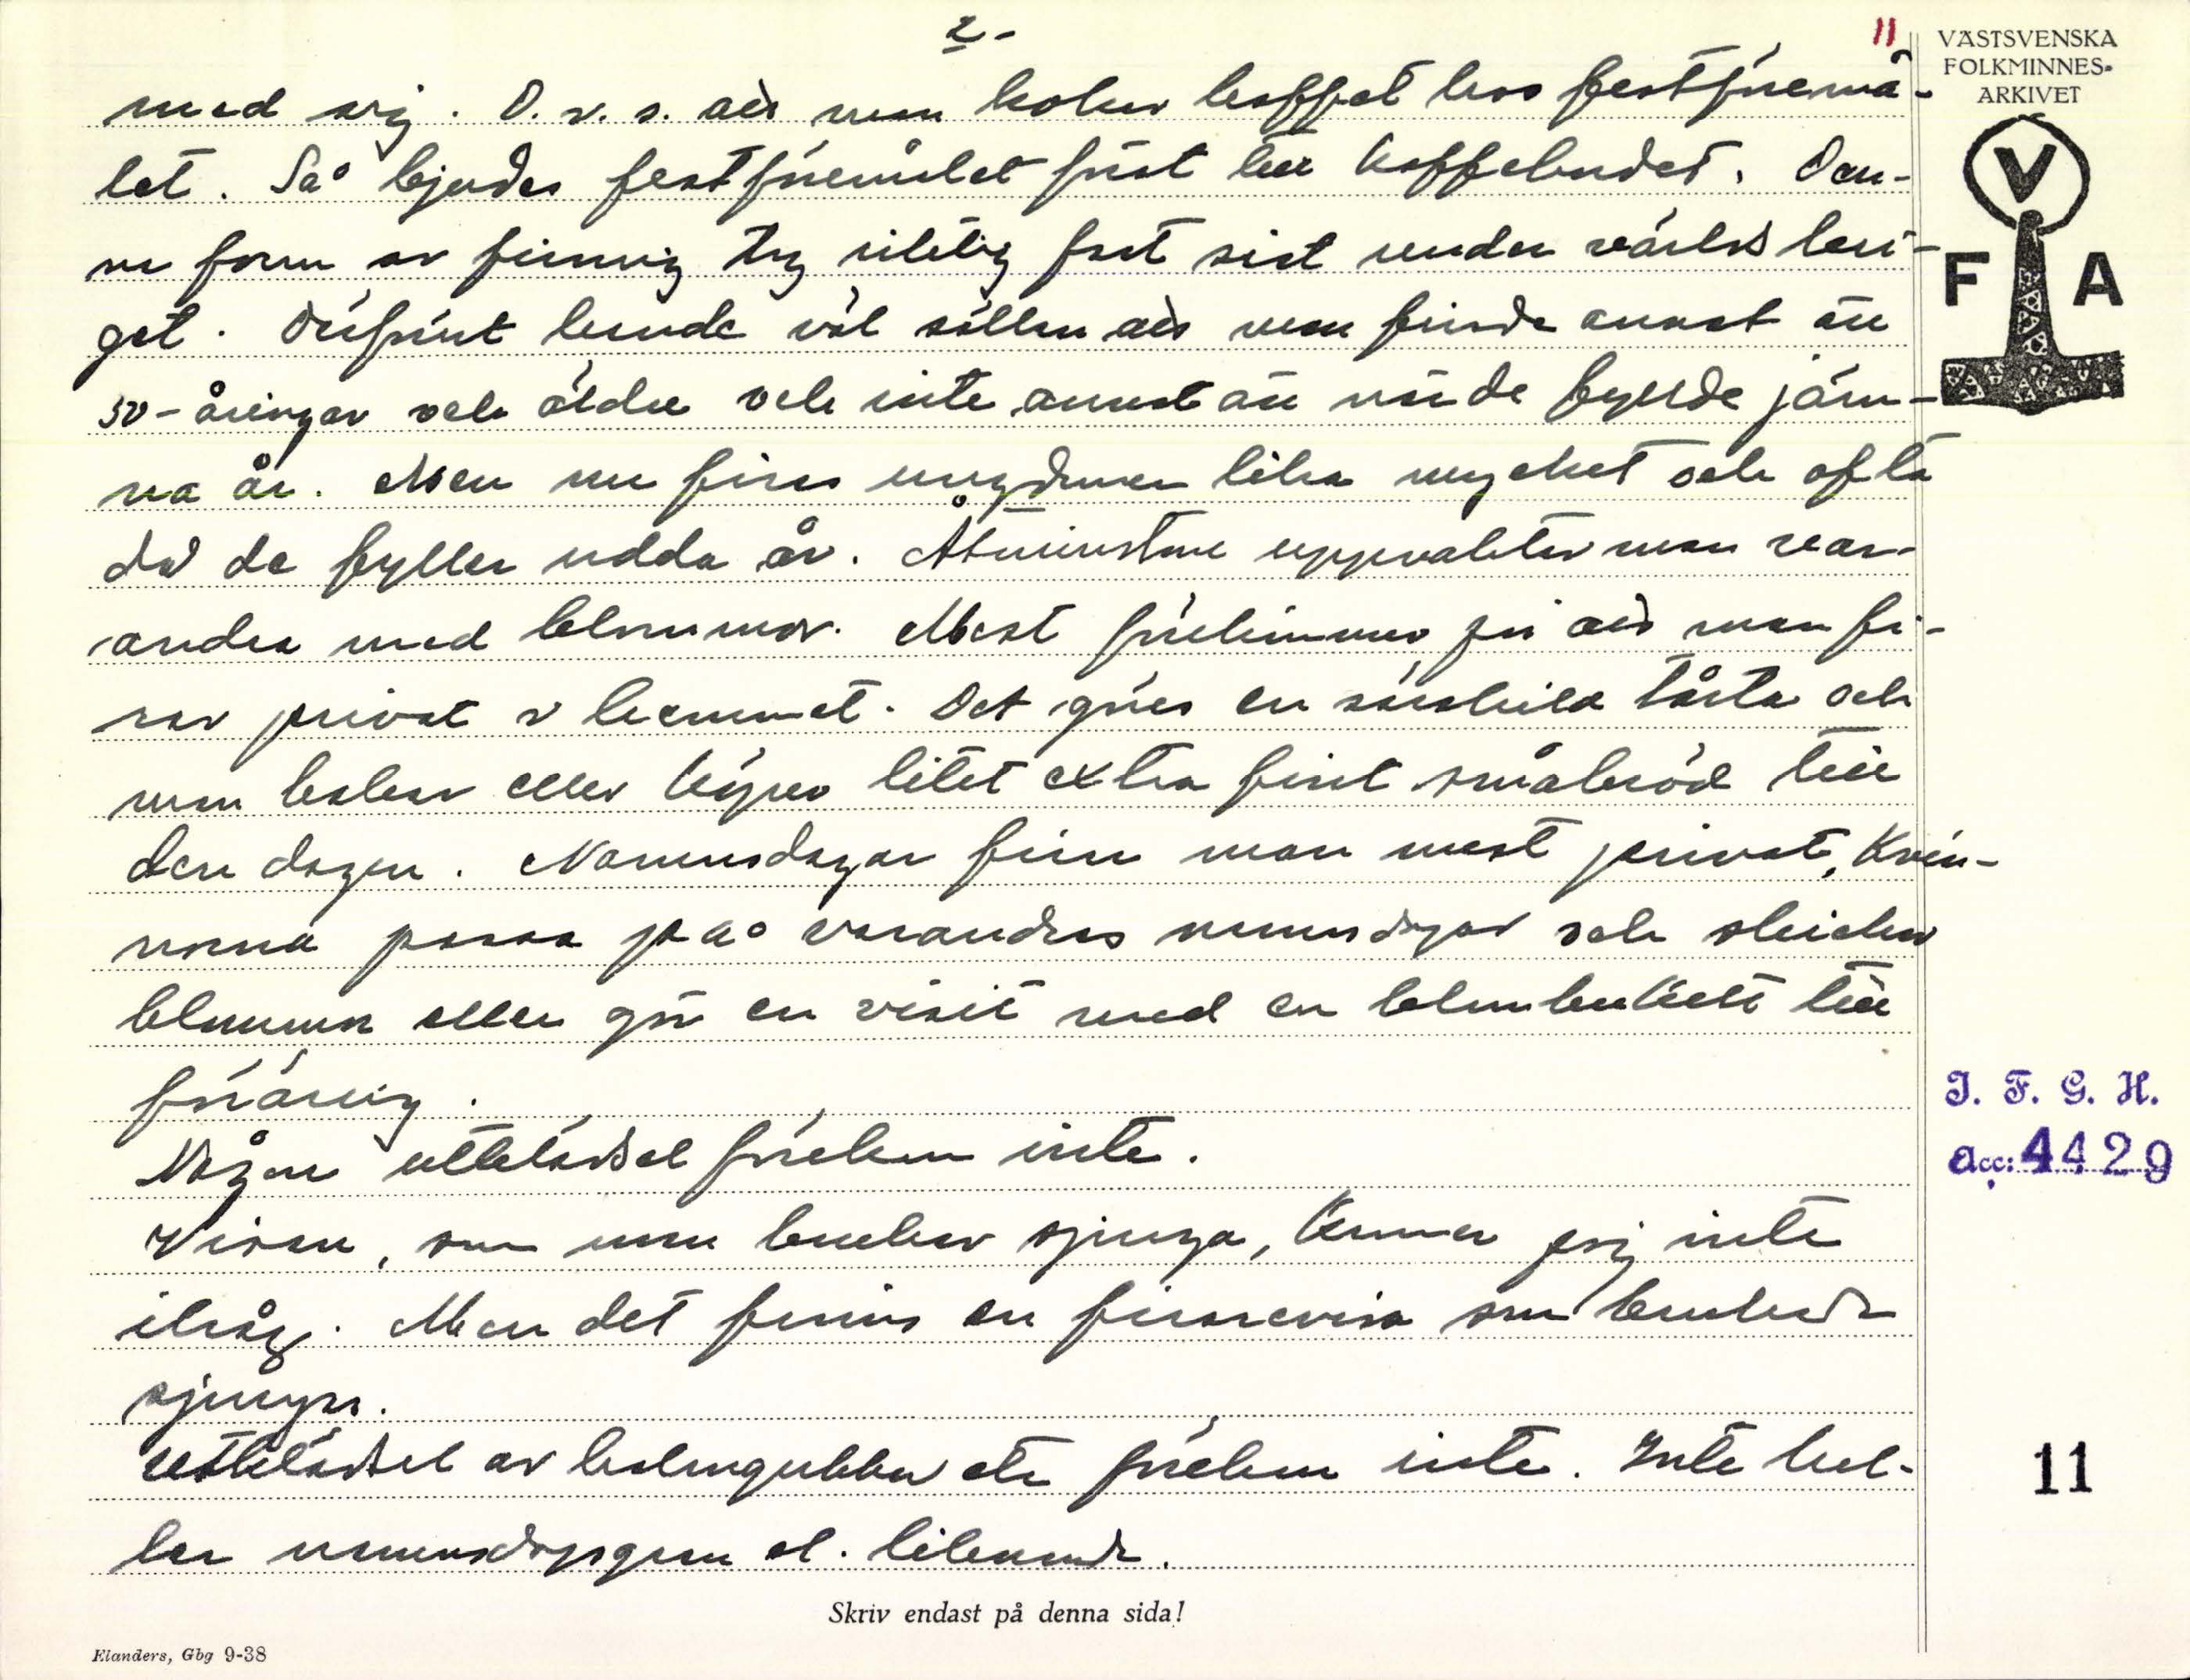 2-
11
VÄSTSVENSKA
FOLKMINNES-
ARKIVET
V
F A
med sig. D.v.s. att man kokar kaffet hos festföremå-
let. Så bjudes festföremålet först till kaffebordet. Den-
na form av firning tog riktig fart sist under världskri-
get. Dörförut hände väl sällan att man firade annat än
50-åringar och äldre och inte annat än när de fyllde jäm-
na år. Men nu firas ungdomen lika mycket och ofta
då de fyller udda år. Åtminstone uppvaktar man var-
andra med blommor. Mest förekommer för att man fi-
rar privat i hemmet. Det göres en särskild tårta och
man bakar eller köper litet extra fint småbröd till
den dagen. Namnsdagar firar man mest privat, Kvin-
norna passa på varandras namnsdagar och skickar
blommor eller gör en visit med en blombukett till
föräring.
Någon utklädsel förekom inte.
Visan, som man brukar sjunga, kommer jag inte
ihåg. Men det finns en firarevisa som brukade
sjungas.
Utklädsel av halmgubbar etc förekom inte. Inte hel-
ler namnsdagsgran el. liknande.
J. F. G. H.
acc: 4429
11
Skriv endast på denna sida!
Elanders, Gbg 9-38